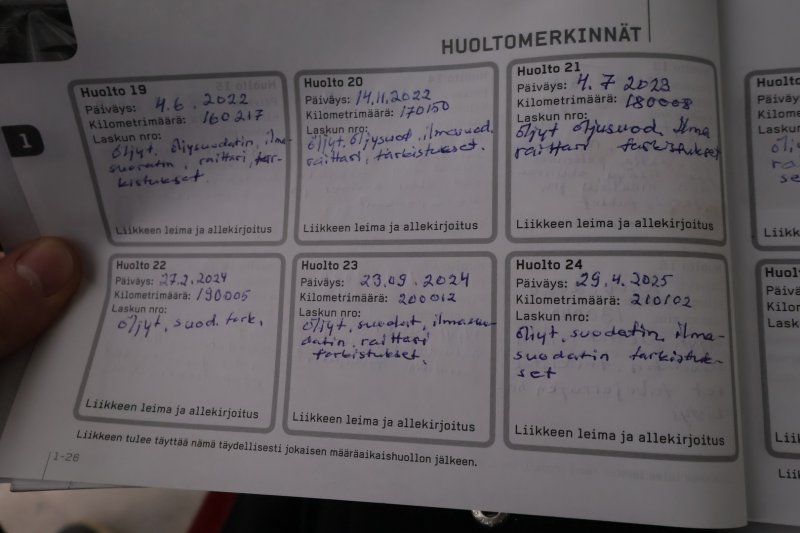 HUOLTOMERKINNÄT
1
Huolto 19
Päiväys: 4.6.2022
Kilometrimäärä: 160217
Laskun nro:
öljyt, öljysuodatin, ilma-
suodatin, raittari, tar-
kistukset.
Liikkeen leima ja allekirjoitus
Huolto 20
Päiväys: 14.11.2022
Kilometrimäärä: 170150
Laskun nro:
öljyt, öljysuod, ilmasuod.
raittari, tarkistukset.
Liikkeen leima ja allekirjoitus
Huolto 21
Päiväys: 4.7 2023
Kilometrimäärä: 180008
Laskun nro:
öljyt öljysuod, ilma
raittari tarkistukset
Liikkeen leima ja allekirjoitus
Huolto 22
Päiväys: 27.2.2024
Kilometrimäärä: 190005
Laskun nro:
öljyt, suod. tark.
Liikkeen leima ja allekirjoitus
Huolto 23
Päiväys: 23.09.2024
Kilometrimäärä: 200012
Laskun nro:
öljyt, suodat, ilmasuo-
datin, raittari
tarkistukset.
Liikkeen leima ja allekirjoitus
Huolto 24
Päiväys: 29.4.2025
Kilometrimäärä: 210102
Laskun nro:
öljyt, suodatin, ilma-
suodatin tarkistuk-
set
Liikkeen leima ja allekirjoitus
Liikkeen tulee täyttää nämä täydellisesti jokaisen määräaikaishuollon jälkeen.
1-26